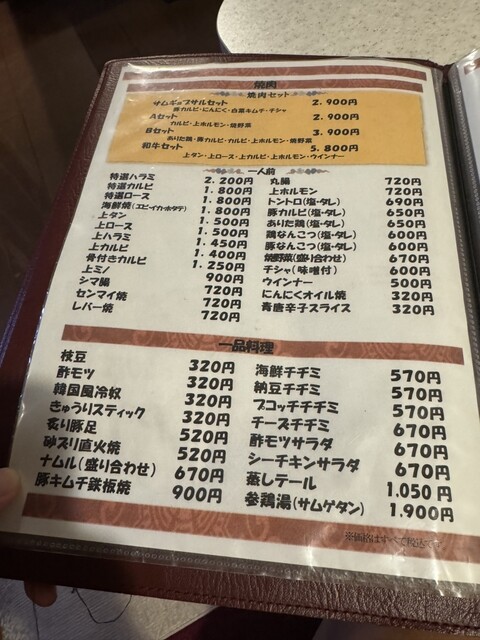 焼肉
焼肉セット
サムギョプサルセット 2.900円
豚カルビ・にんにく・白菜キムチ・チシャ
Aセット 2.900円
カルビ・上ホルモン・焼野菜
Bセット 3.900円
ありた鶏・豚カルビ・カルビ・上ホルモン・焼野菜
和牛セット 5.800円
上タン・上ロース・上カルビ・上ホルモン・ウインナー
一人前
特選ハラミ 2.200円
特選カルビ 1.800円
特選ロース 1.800円
海鮮焼(エビ・イカ・ホタテ) 1.800円
上タン 1.500円
上ロース 1.500円
上ハラミ 1.450円
上カルビ 1.400円
骨付きカルビ 1.250円
上ミノ 900円
シマ腸 720円
センマイ焼 720円
レバー焼 720円
丸腸 720円
上ホルモン 720円
トントロ(塩・タレ) 690円
豚カルビ(塩・タレ) 650円
ありた鶏(塩・タレ) 650円
鶏なんこつ(塩・タレ) 600円
豚なんこつ(塩・タレ) 600円
焼野菜(盛り合わせ) 670円
チシャ(味噌付) 600円
ウインナー 500円
にんにくオイル焼 320円
青唐辛子スライス 320円
一品料理
枝豆 320円
酢モツ 320円
韓国風冷奴 320円
きゅうりスティック 320円
炙り豚足 520円
砂ズリ直火焼 520円
ナムル(盛り合わせ) 670円
豚キムチ鉄板焼 900円
海鮮チヂミ 570円
納豆チヂミ 570円
プコッチチヂミ 570円
チーズチヂミ 670円
酢モツサラダ 670円
シーチキンサラダ 670円
蒸しテール 1.050円
参鶏湯(サムゲタン) 1.900円
※価格はすべて税込